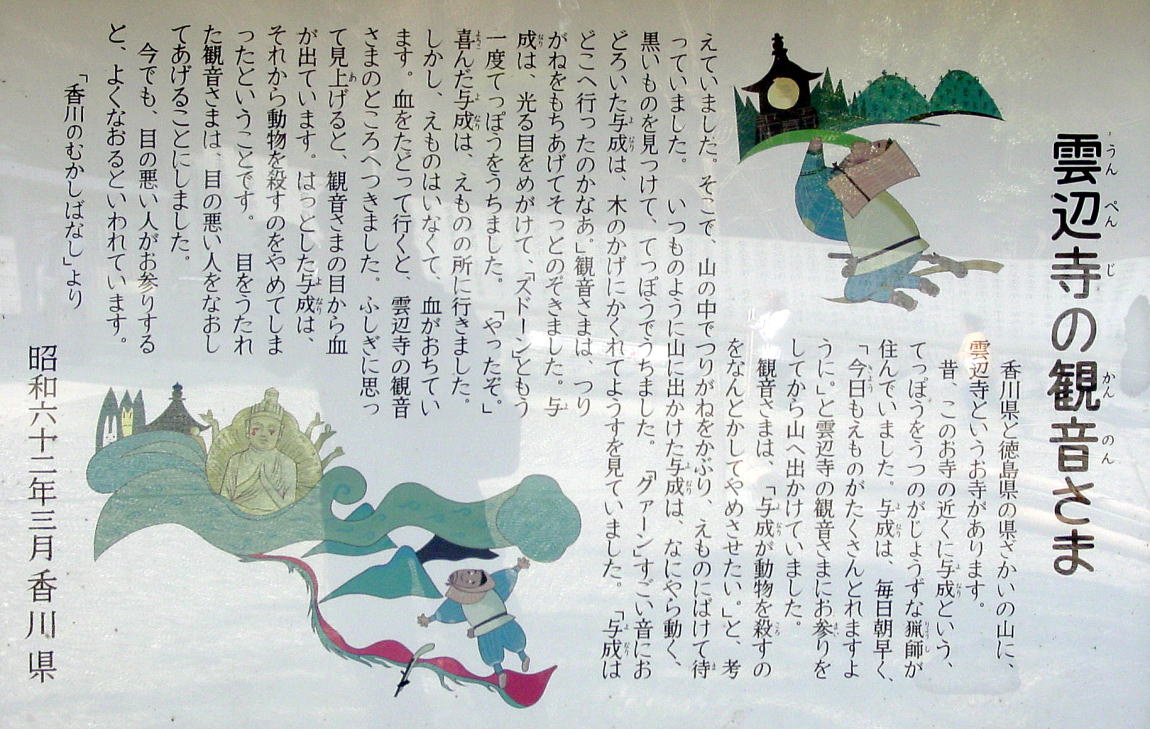 雲辺寺の観音さま
うんぺんじ かんのん
香川県と徳島県の県ざかいの山に、
雲辺寺というお寺があります。
昔、このお寺の近くに与成という、
てっぽうをうつのがじょうずな猟師が
住んでいました。与成は、毎日朝早く、
「今日もえものがたくさんとれますよ
うに。」と雲辺寺の観音さまにお参りを
してから山へ出かけていました。
観音さまは、「与成が動物を殺すの
をなんとかしてやめさせたい。」と、考
えていました。そこで、山の中でつりがねをかぶり、えものにばけて待
っていました。 いつものように山に出かけた与成は、なにやら動く、
黒いものを見つけて、てっぽうでうちました。「グァーン」すごい音にお
どろいた与成は、木のかげにかくれてようすを見ていました。「与成は
どこへ行ったのかなあ。」観音さまは、つり
がねをもちあげてそっとのぞきました。与
成は、光る目をめがけて、「ズドーン」ともう
一度てっぽうをうちました。「やったぞ。」
喜んだ与成は、えものの所に行きました。
しかし、えものはいなくて、血がおちてい
ます。血をたどって行くと、雲辺寺の観音
さまのところへつきました。ふしぎに思っ
て見上げると、観音さまの目から血
が出ています。はっとした与成は、
それから動物を殺すのをやめてしま
ったということです。 目をうたれ
た観音さまは、目の悪い人をなおし
てあげることにしました。
今でも、目の悪い人がお参りする
と、よくなおるといわれています。
「香川のむかしばなし」より
昭和六十二年三月 香川県